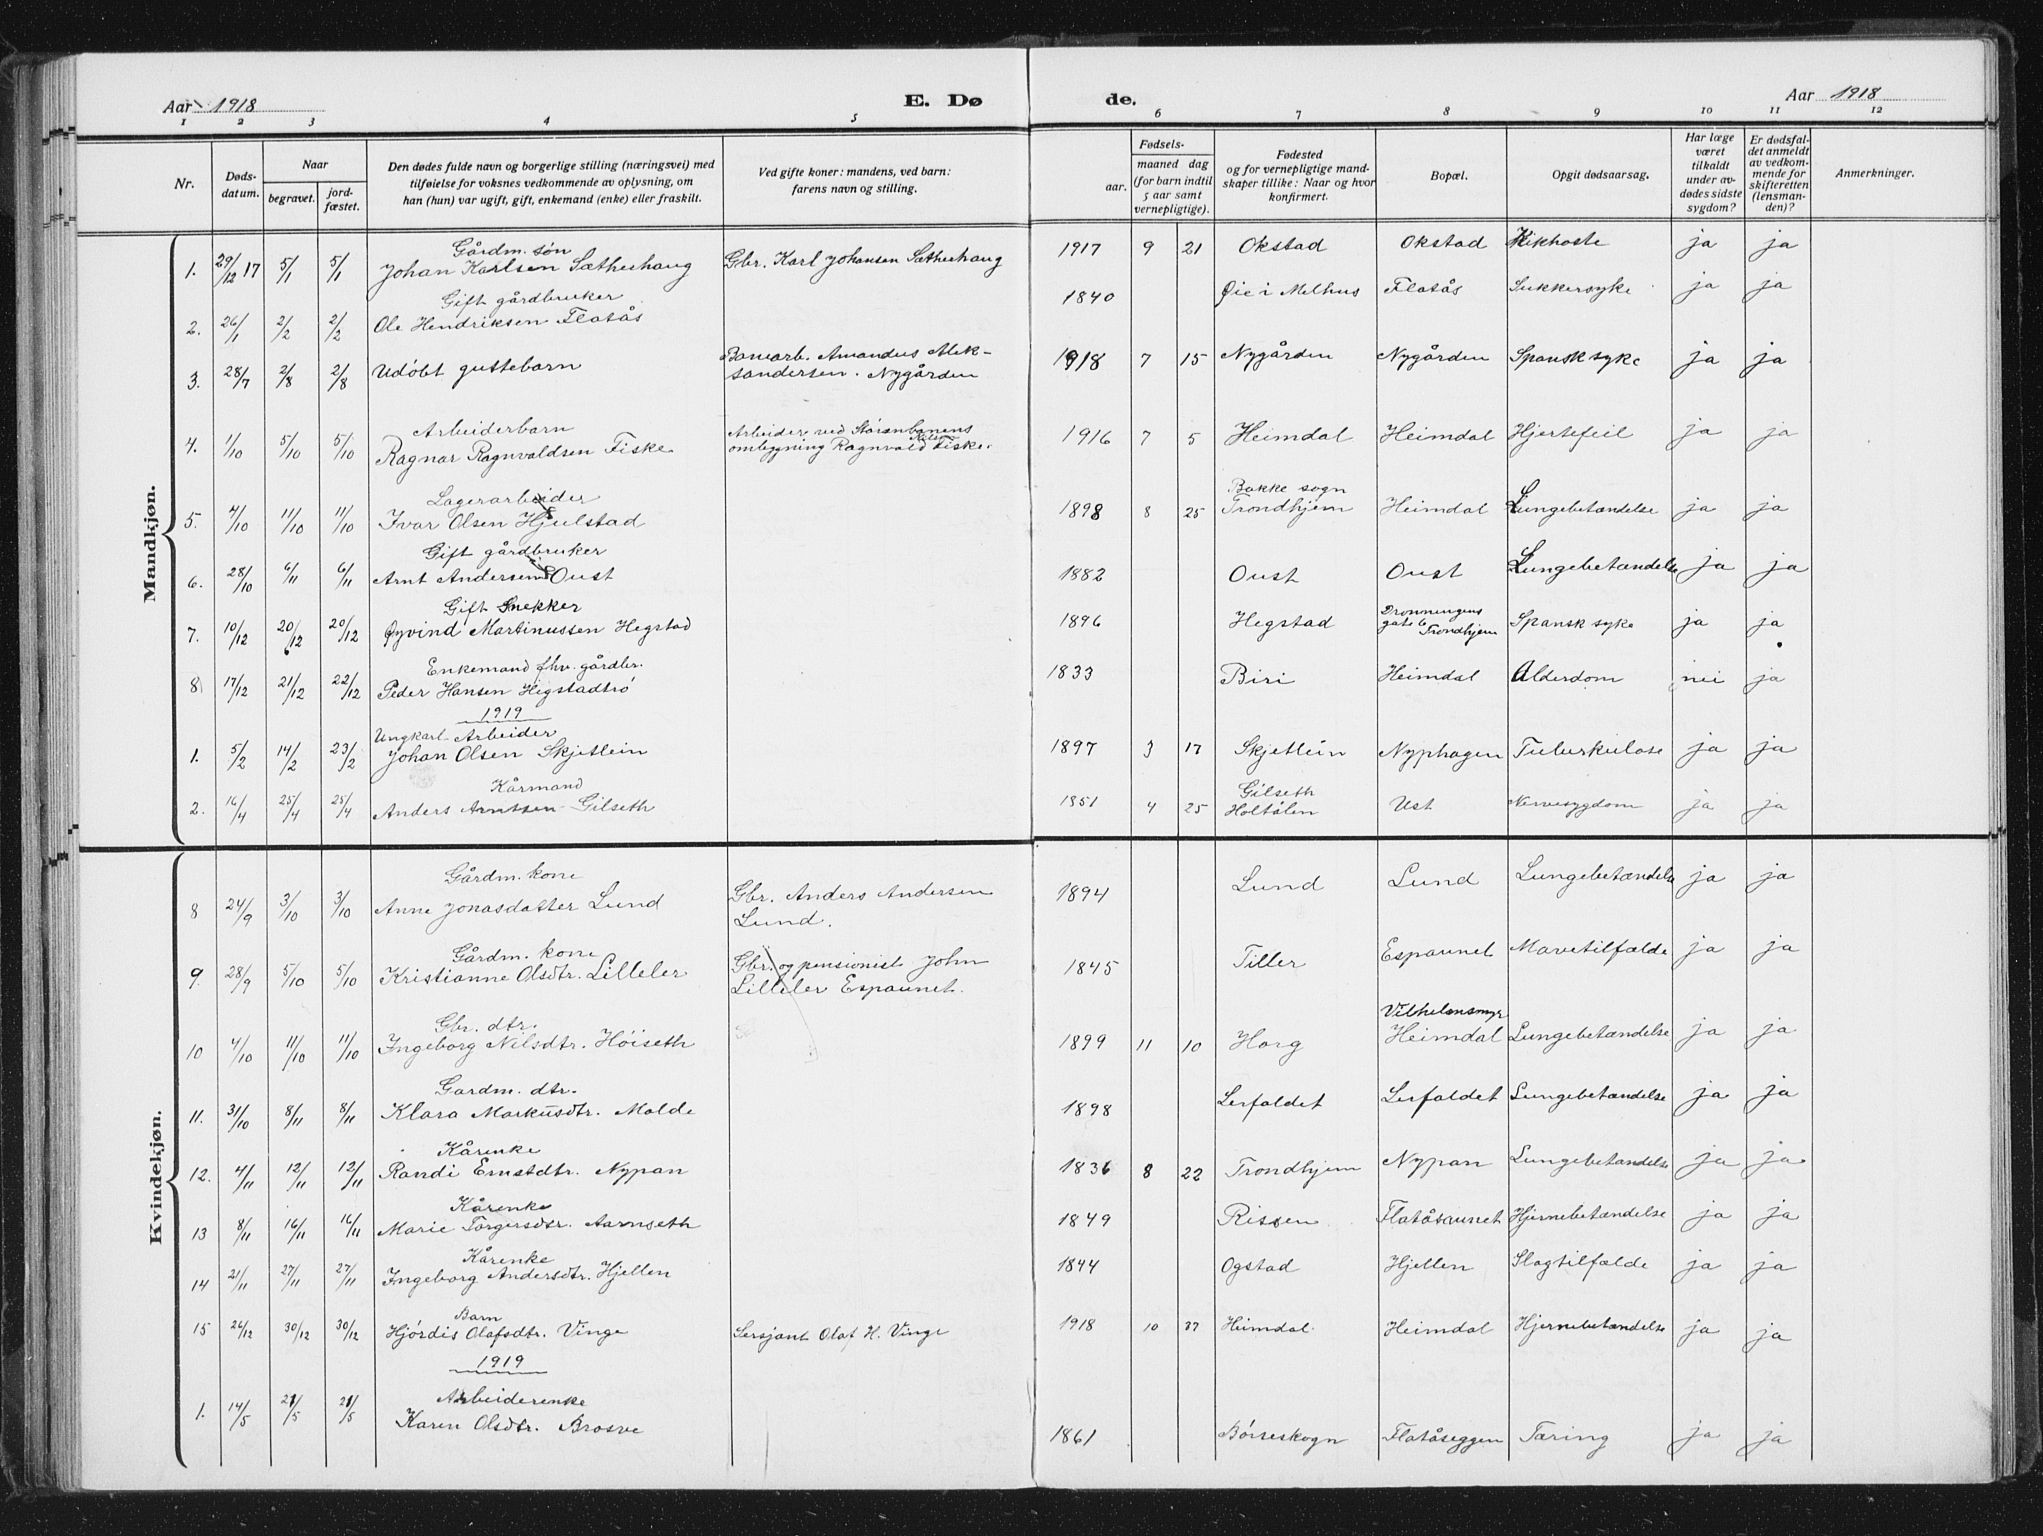 Aar 1918 E. Dø de. Aar 1918
1 2 3 4 5 6 7 8 9 10 11 12
Nr. Døds-datum. Naar begravet. jord-fæstet. Den dødes fulde navn og borgerlige stilling (næringsvei) med tilføielse for voksnes vedkommende av oplysning, om han (hun) var ugift, gift, enkemand (enke) eller fraskilt. Ved gifte koner: mandens, ved barn: farens navn og stilling. Fødsels- aar. maaned dag (for barn indtil 5 aar samt vernepligtige). Fødested og for vernepligtige mand-skaper tillike: Naar og hvor konfirmert. Bopæl. Opgit dødsaarsag. Har læge været tilkaldt under av-dødes sidste sygdom? Er dødsfal-det anmeldt av vedkom-mende for skifteretten (lensman-den)? Anmerkninger.
Mandkjøn.
Gårdm. søn
1. 29/12 17 5/1 5/1 Johan Karlsen Sætherhaug Gbr. Karl Johansen Sætherhaug 1917 9 21 Okstad Okstad Kikhoste ja ja
Gift gårdbruker
2. 26/1 2/2 2/2 Ole Hendriksen Flatås 1840 Øie i Melhus Flatås Sukkersyke ja ja
3. 28/7 2/8 2/8 Udøbt guttebarn Banearb. Amandus Alek-
sandersen. Nygården 1918 7 15 Nygården Nygården Spansk syke ja ja
Arbeiderbarn
4. 1/10 5/10 5/10 Ragnar Ragnvaldsen Fiske Arbeider ved Størenbanens
omlegging Ragnvald Fiske. 1916 7 5 Heimdal Heimdal Hjertefeil ja ja
Lagerarbeider
5. 4/10 11/10 11/10 Ivar Olsen Hjulstad 1898 8 25 Bakke sogn
Trondhjem Heimdal Lungebetændelse ja ja
Gift gårdbruker
6. 28/10 6/11 6/11 Arnt Andersen Oust 1882 Oust Oust Lungebetændelse ja ja
Gift Snekker
7. 10/12 20/12 20/12 Øyvind Martinussen Hegstad 1896 Hegstad Dronningens
gate 6 Trondhjem Spansk syke ja ja
Enkemand fhv. gårdbr.
8 17/12 21/12 22/12 Peder Hansen Hegstadtrø 1833 Biri Heimdal Alderdom nei ja
1919
Ungkarl Arbeider
1. 5/2 14/2 23/2 Johan Olsen Skjetlein 1897 3 17 Skjetlein Nyphagen Tuberkulose ja ja
Kårmand
2. 16/4 25/4 25/4 Anders Arntsen Gilseth 1851 4 25 Gilseth
Holtålen Ust Nervesygdom ja ja
Kvindekjøn.
Gårdm. kone
8 24/9 3/10 3/10 Anne Jonasdatter Lund Gbr. Anders Andersen
Lund. 1894 Lund Lund Lungebetændelse ja ja
Gårdm. kone
9. 28/9 5/10 5/10 Kristianne Olsdtr. Lilleler Gbr. og pensionist John
Lilleler Espaunet. 1845 Tiller Espaunet Mavetilfælde ja ja
Gbr. dtr.
10 4/10 11/10 11/10 Ingeborg Nilsdtr. Høiseth 1899 11 10 Horg Vilhelmsmyr
Heimdal Lungebetændelse ja ja
Gardm. dtr.
11. 31/10 8/11 8/11 Klara Markusdtr. Molde 1898 Lerfaldet Lerfaldet Lungebetændelse ja ja
Kårenke
12. 4/11 12/11 12/11 Randi Ernstdtr. Nypan 1836 8 22 Trondhjem Nypan Lungebetændelse ja ja
Kårenke
13 8/11 16/11 16/11 Marie Torgersdtr. Aarnseth 1849 Rissen Flatåsaunet Hjernebetændelse ja ja
Kårenke
14 21/11 27/11 27/11 Ingeborg Andersdtr. Hjellen 1844 Ogstad Hjellen Slagtilfælde ja ja
Barn
15 26/12 30/12 30/12 Hjørdis Olafsdtr. Vinge Sersjant Olaf H. Vinge 1918 10 Heimdal Heimdal Hjernebetændelse ja ja
1919
Arbeiderenke
1. 14/5 21/5 21/5 Karen Olsdtr. Brosve 1861 Børseskogn Flatåseggen Tæring ja ja